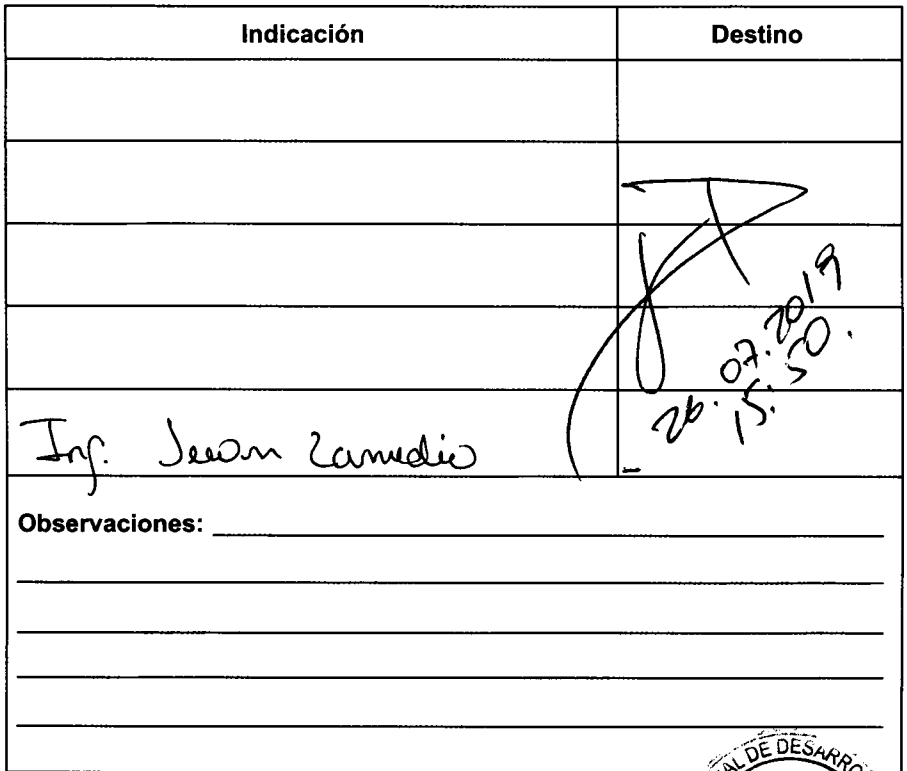 Indicación Destino
26.07.2019
15:50.
Ing. Juan Zamudio
Observaciones:
AL DE DESARRO